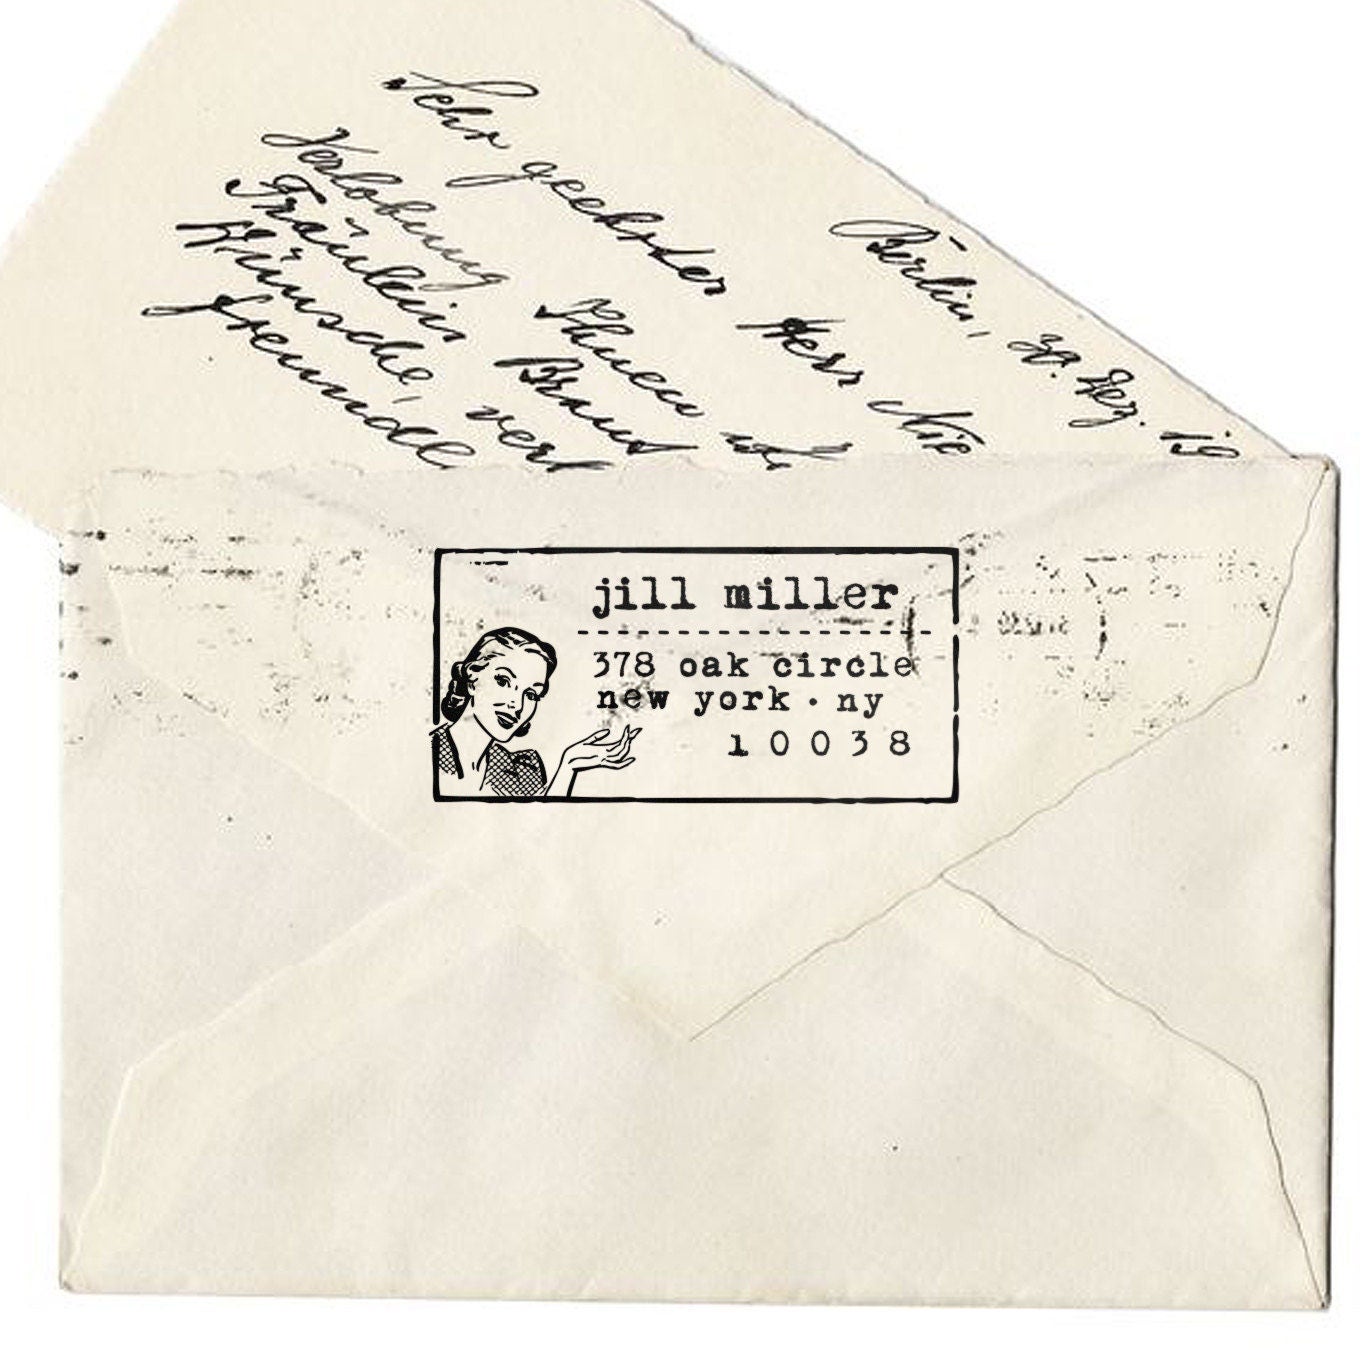 Berlin, 30. Dez. 19
Sehr geehrter Herr Nie
Verlobung Ihnen
Fräulein Braut
Wünsche, ver
freundl
jill miller
378 oak circle
new york · ny
10038